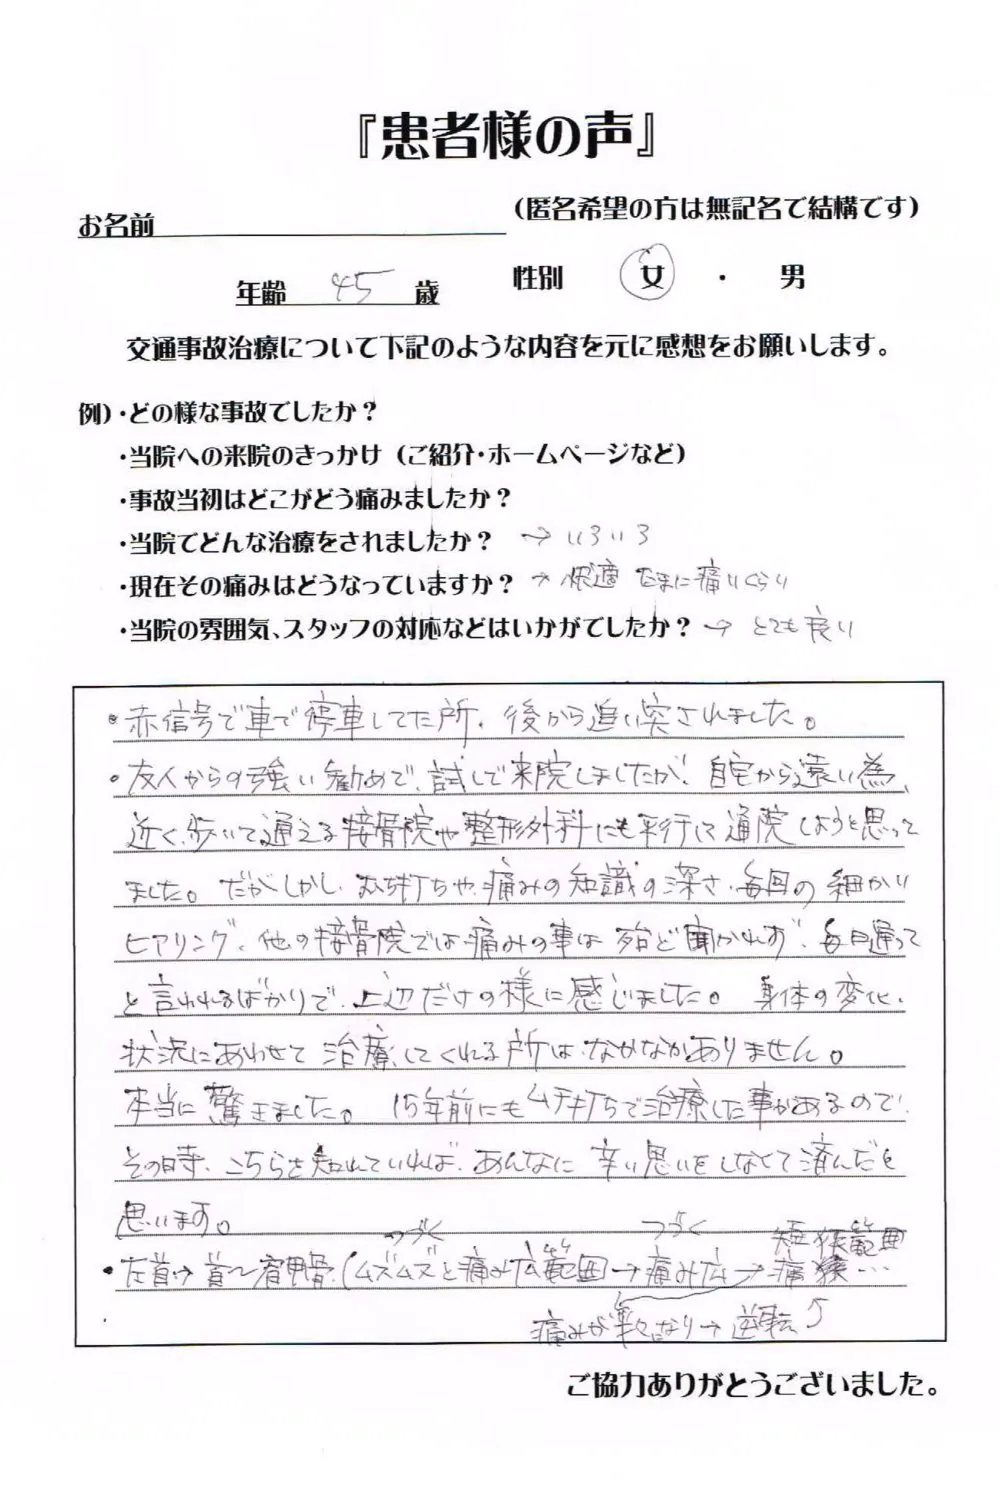 『患者様の声』
(匿名希望の方は無記名で結構です)
お名前
年齢 45 歳 性別 女 ・ 男
交通事故治療について下記のような内容を元に感想をお願いします。
例)・どの様な事故でしたか？
・当院への来院のきっかけ (ご紹介・ホームページなど)
・事故当初はどこがどう痛みましたか？
・当院でどんな治療をされましたか？ → いろいろ
・現在その痛みはどうなっていますか？ → 快適 たまに痛いくらい
・当院の雰囲気、スタッフの対応などはいかがでしたか？ → とても良い
・赤信号で車で停車してた所、後から追い突されました。
・友人からの強い勧めで、試しで来院しましたが、自宅から遠い為、
近く、歩いて通える接骨院や整形外科にも平行して通院しようと思って
ました。だがしかし、むち打ちや、痛みの知識の深さ、毎回の細かい
ヒアリング、他の接骨院では痛みの事は殆ど聞かれず、毎日通って
と言われるばかりで、上辺だけの様に感じました。身体の変化、
状況にあわせて治療してくれる所は、なかなかありません。
本当に驚きました。15年前にもムチ打ちで治療した事があるので、
その時、こちらを知れていれば、あんなに辛い思いをしなくて済んだと
思います。
つづく つづく 短 狭範囲
・左首→首〜肩甲骨(ムズムズと痛み広範囲→痛み広→痛狭…
痛みが なり→逆転
ご協力ありがとうございました。